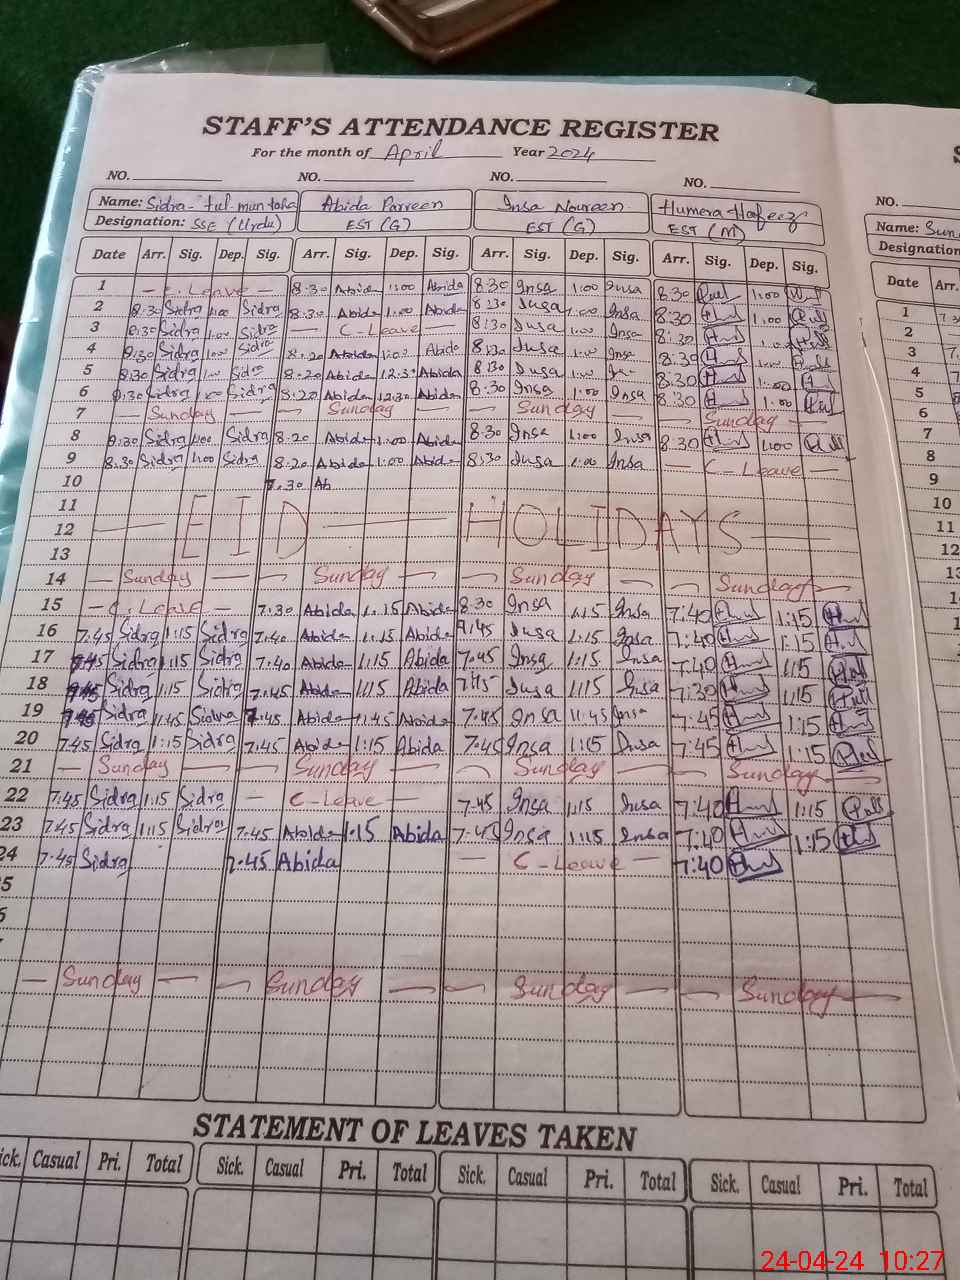 STAFF'S ATTENDANCE REGISTER
For the month of April Year 2024
NO. NO. NO. NO. NO.
Name: Sidra-tul-muntaha Abida Parveen Insa Noureen Humera Hafeez Name:
Designation: SSE (Urdu) EST (G) EST (G) EST (M) Designation
Date Arr. Sig. Dep. Sig. Arr. Sig. Dep. Sig. Arr. Sig. Dep. Sig. Arr. Sig. Dep. Sig. Date Arr.
1 - C. Leave - 8.30 Abida 1:00 Abida 8.30 Insa 1:00 Insa 8.30 1:00
2 8:30 Sidra 1:00 Sidra 8.30 Abida 1:00 Abida 8:30 Insa 1:00 Insa 8:30 1:00
3 8:30 Sidra 1:00 Sidra - C-Leave - 8:30 Insa 1:00 Insa 8:30
4 8:30 Sidra 1:00 Sidra 8:20 Abida 1:00 Abida 8:30 Insa 1:00 Insa 8:30 1:00
5 8:30 Sidra 1:00 Sidra 8:20 Abida 12:30 Abida 8:30 Insa 1:00 8:30 1:00
6 8:30 Sidra 1:00 Sidra 8:20 Abida 12:30 Abida 8:30 Insa 1:00 Insa 8:30 1:00
7 - Sunday - - Sunday - - Sunday - - Sunday -
8 8:30 Sidra 1:00 Sidra 8:20 Abida 1:00 Abida 8:30 Insa 1:00 Insa 8:30 1:00
9 8:30 Sidra 1:00 Sidra 8:20 Abida 1:00 Abida 8:30 Insa 1:00 Insa - C-Leave -
10 7.30 Ab
11
12 - EID - HOLIDAYS -
13
14 - Sunday - - Sunday - - Sunday - - Sunday -
15 - C. Leave - 7:30 Abida 1:15 Abida 8:30 Insa 1:15 Insa 7:40 1:15
16 7:45 Sidra 1:15 Sidra 7:40 Abida 1:15 Abida 7:45 Insa 1:15 Insa 7:40 1:15
17 7:45 Sidra 1:15 Sidra 7:40 Abida 1:15 Abida 7:45 Insa 1:15 Insa 7:40 1:15
18 7:45 Sidra 1:15 Sidra 7:45 Abida 1:15 Abida 7:45 Insa 1:15 Insa 7:30 1:15
19 7:45 Sidra 11:45 Sidra 7:45 Abida 11:45 Abida 7:45 Insa 11:45 Insa 7:45 1:15
20 7:45 Sidra 1:15 Sidra 7:45 Abida 1:15 Abida 7:45 Insa 1:15 Insa 7:45 1:15
21 - Sunday - - Sunday - - Sunday - - Sunday -
22 7:45 Sidra 1:15 Sidra - C-Leave - 7:45 Insa 1:15 Insa 7:40 1:15
23 7:45 Sidra 1:15 Sidra 7:45 Abida 1:15 Abida 7:45 Insa 1:15 Insa 7:40 1:15
24 7:45 Sidra 7:45 Abida - C-Leave - 7:40
5
6
- Sunday - - Sunday - - Sunday - - Sunday -
STATEMENT OF LEAVES TAKEN
ick. Casual Pri. Total Sick. Casual Pri. Total Sick. Casual Pri. Total Sick. Casual Pri. Total
1
2
3
4
5
6
7
8
9
10
11
12
24-04-24 10:27